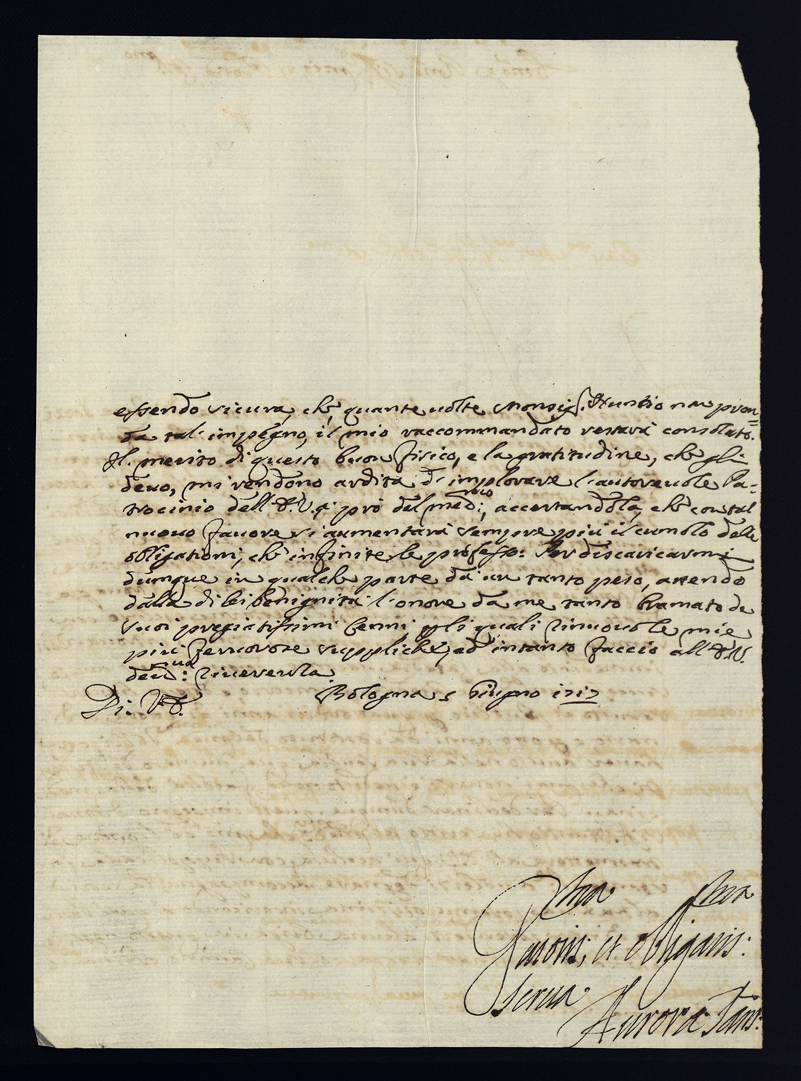 essendo sicura, che quante volte Monsig.r Nuntio ne pren=
da tal'impegno, il mio raccommandato restarà consolato.
Il merito di questo buon fisico, e la gratitudine, che gli
devo, mi rendono ardita di implorare l'autorevole Pa-
trocinio dell'V.S. à prò del med.mo, accertandola, che con tal
nuovo favore si aumentarà sempre più il cumolo delle
obligationi, che infinite le professo: Per discaricarmi
dunque in qualche parte da un tanto peso, attendo
dalla di lei benignità l'onore da me tanto bramato de
suoi pregiatissimi cenni gli quali rinuovo le mie
più fervorose suppliche, ed intanto faccio all'
dev.ma: riverenza
Di: V.S.
Bologna Giugno 1717
Obligatis:
serva
Aurora